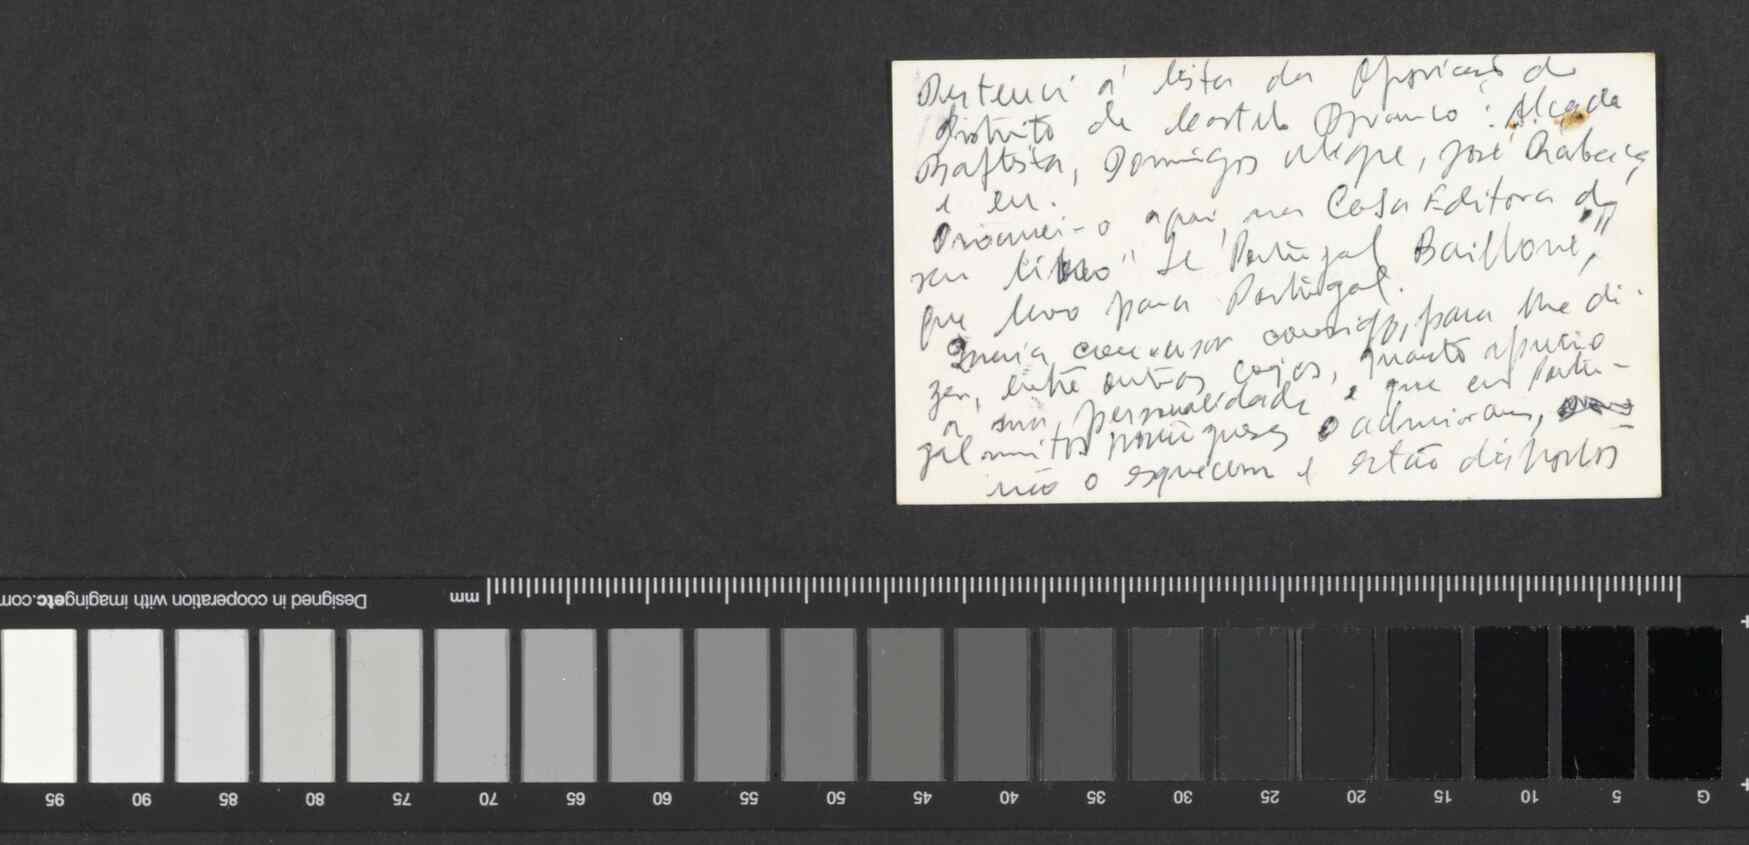 Pertenci à lista da Oposição do
Distrito de Castelo Branco: Alçada
Baptista, Domingos Megre, José Rabaça
e eu.
Procurei-o aqui, na Casa Editora do
seu livro "Le Portugal Baillonné",
que levo para Portugal.
Queria conversar consigo, para lhe di-
zer, entre outras coisas, quanto aprecio
a sua personalidade e que em Portu-
gal muitos portugueses o admiram,
não o esquecem e estão dispostos
Designed in cooperation with imagingetc.com
mm
95 90 85 80 75 70 65 60 55 50 45 40 35 30 25 20 15 10 5 G